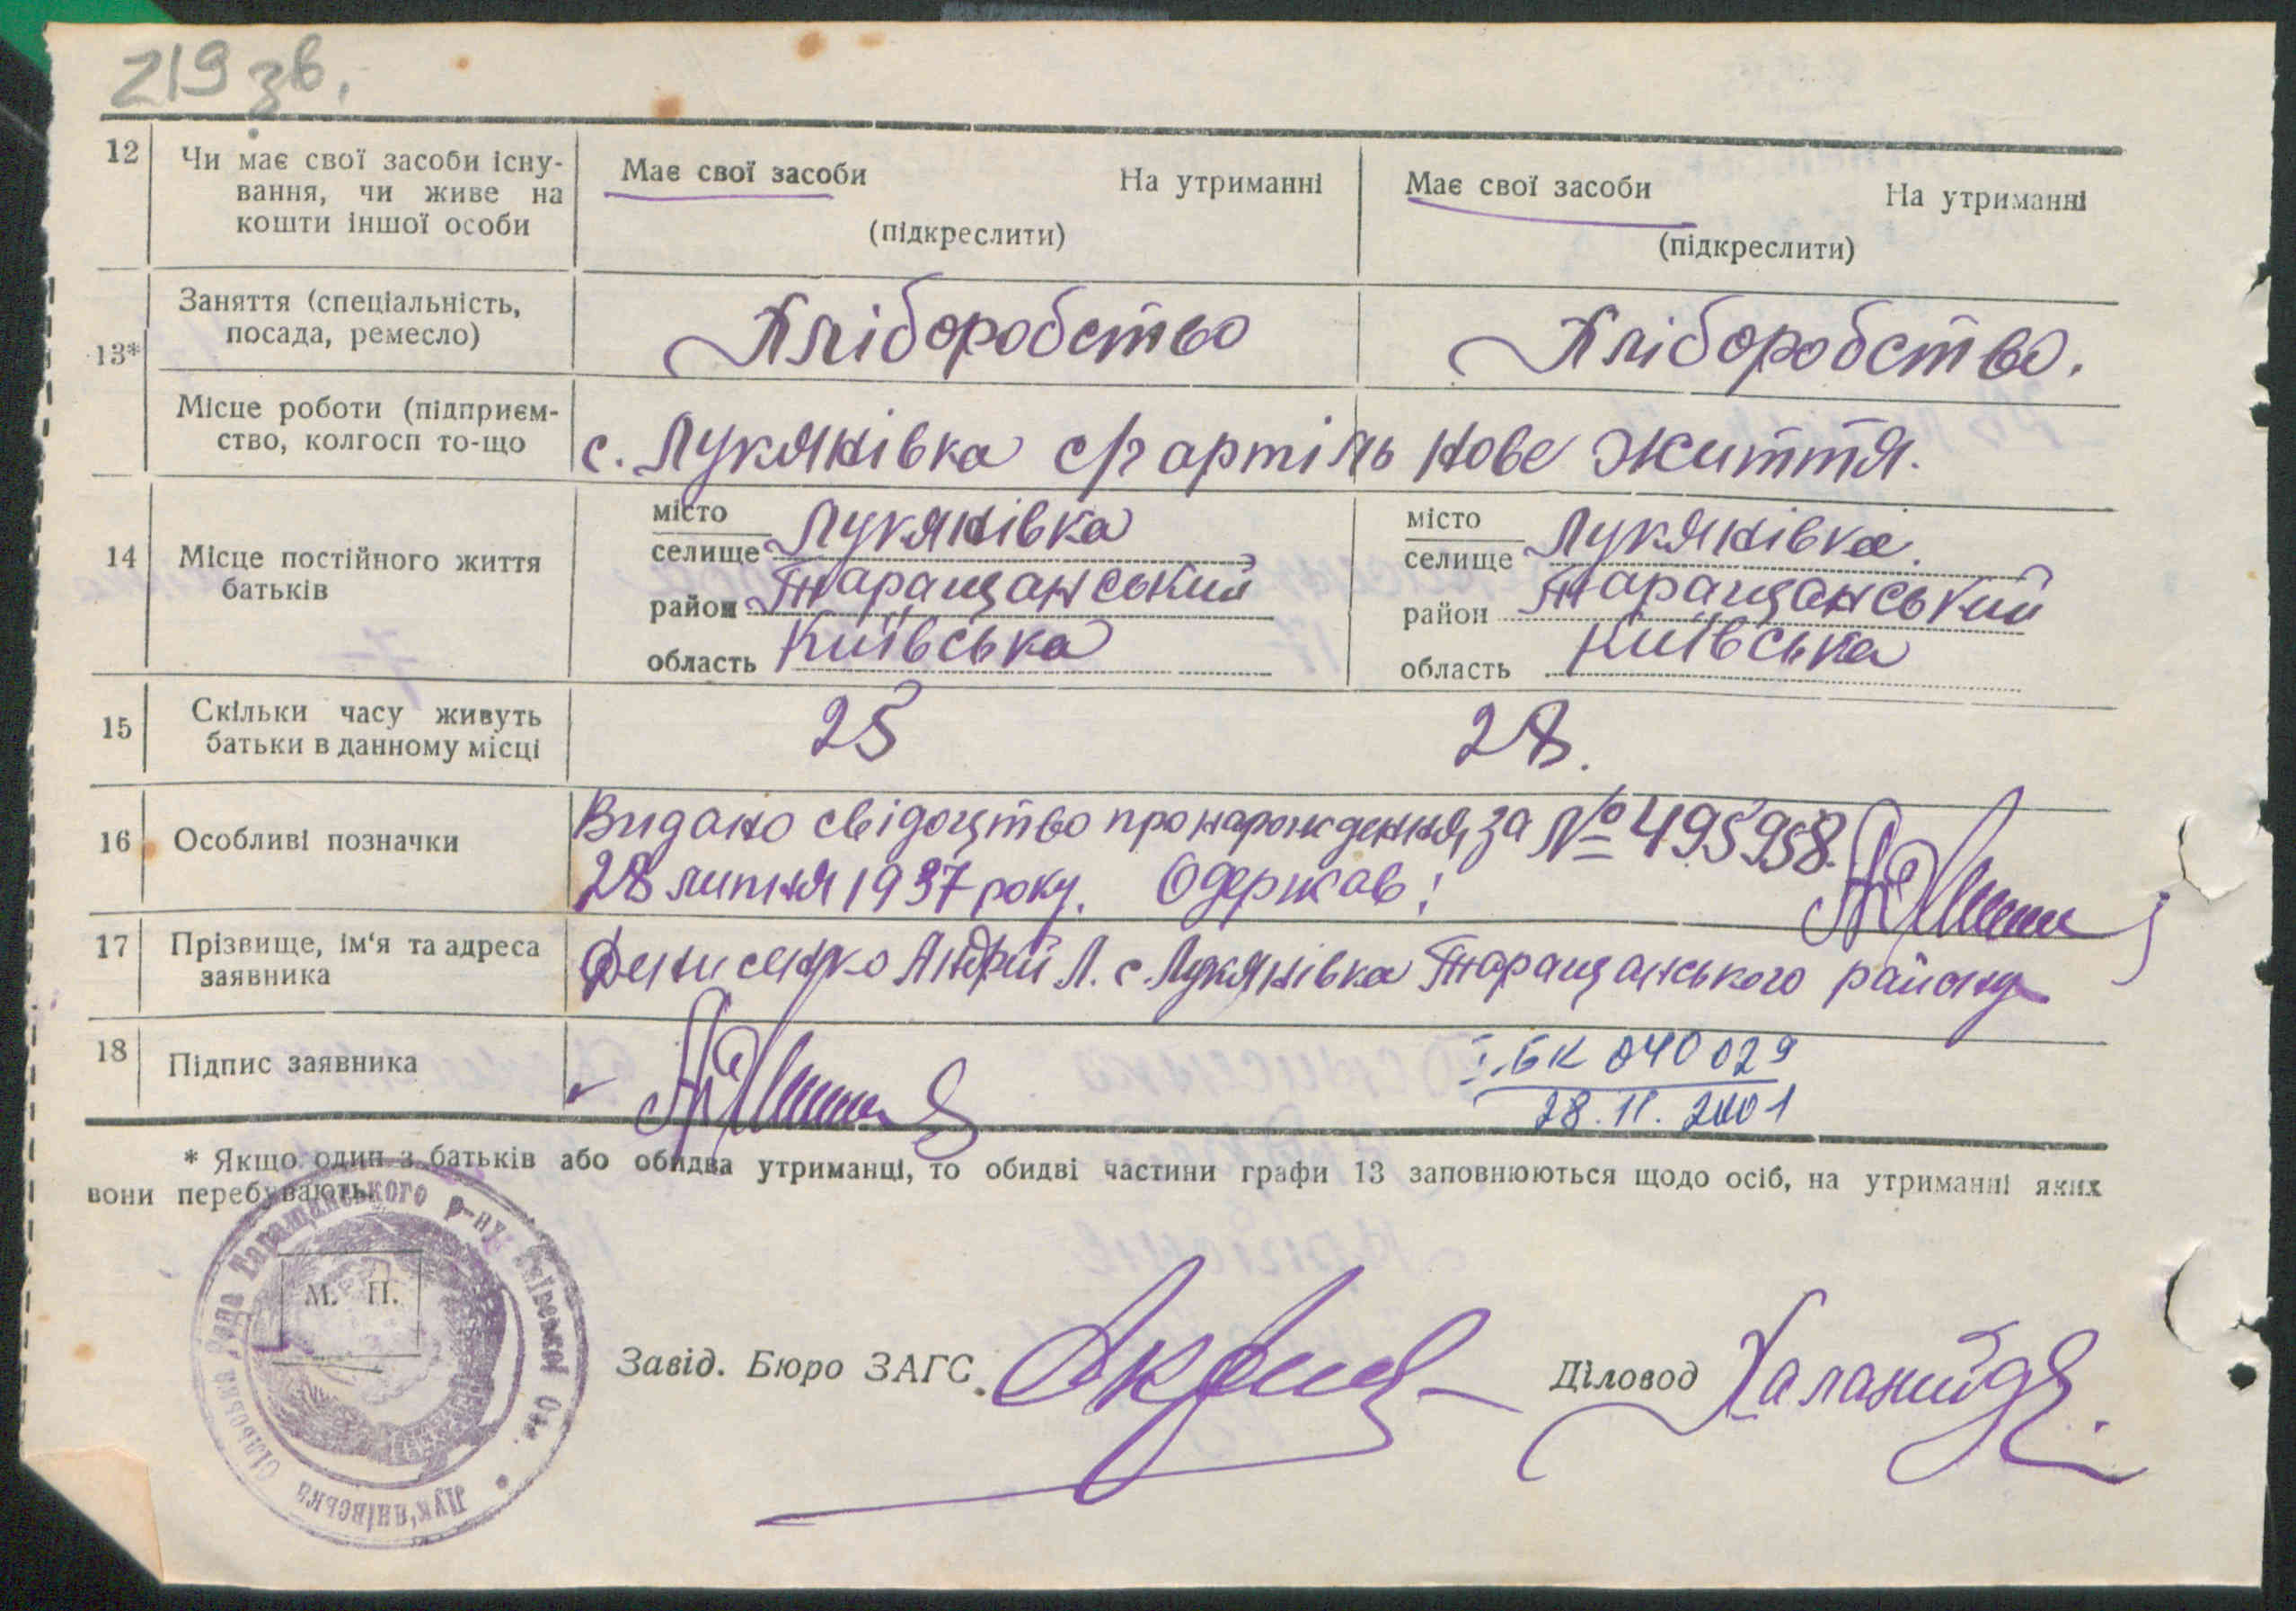 219 зв.
12 Чи має свої засоби існу-
вання, чи живе на
кошти іншої особи
Має свої засоби На утриманні
(підкреслити)
Має свої засоби На утриманні
(підкреслити)
13*
Заняття (спеціальність,
посада, ремесло)
Хліборобство
Хліборобство.
Місце роботи (підприєм-
ство, колгосп то-що
с. Лукянівка с/г артіль Нове життя.
14 Місце постійного життя
батьків
місто
селище Лукянівка
район Таращанський
область Київська
місто
селище Лукянівка
район Таращанський
область Київська
15 Скільки часу живуть
батьки в данному місці
25
28.
16 Особливі позначки
Видано свідоцтво про народження за № 495958.
28 липня 1937 року. Одержав:
17 Прізвище, ім'я та адреса
заявника
Денисенко Андрій Л. с Лукянівка Таращанського району
18 Підпис заявника
І-БК 040029
28.11.2001
* Якщо один з батьків або обидва утриманці, то обидві частини графи 13 заповнюються щодо осіб, на утриманні яких
вони перебувають.
Лук'янівська сільська Рада Таращанського р-ну Київської Обл.
М. П.
Завід. Бюро ЗАГС
Діловод